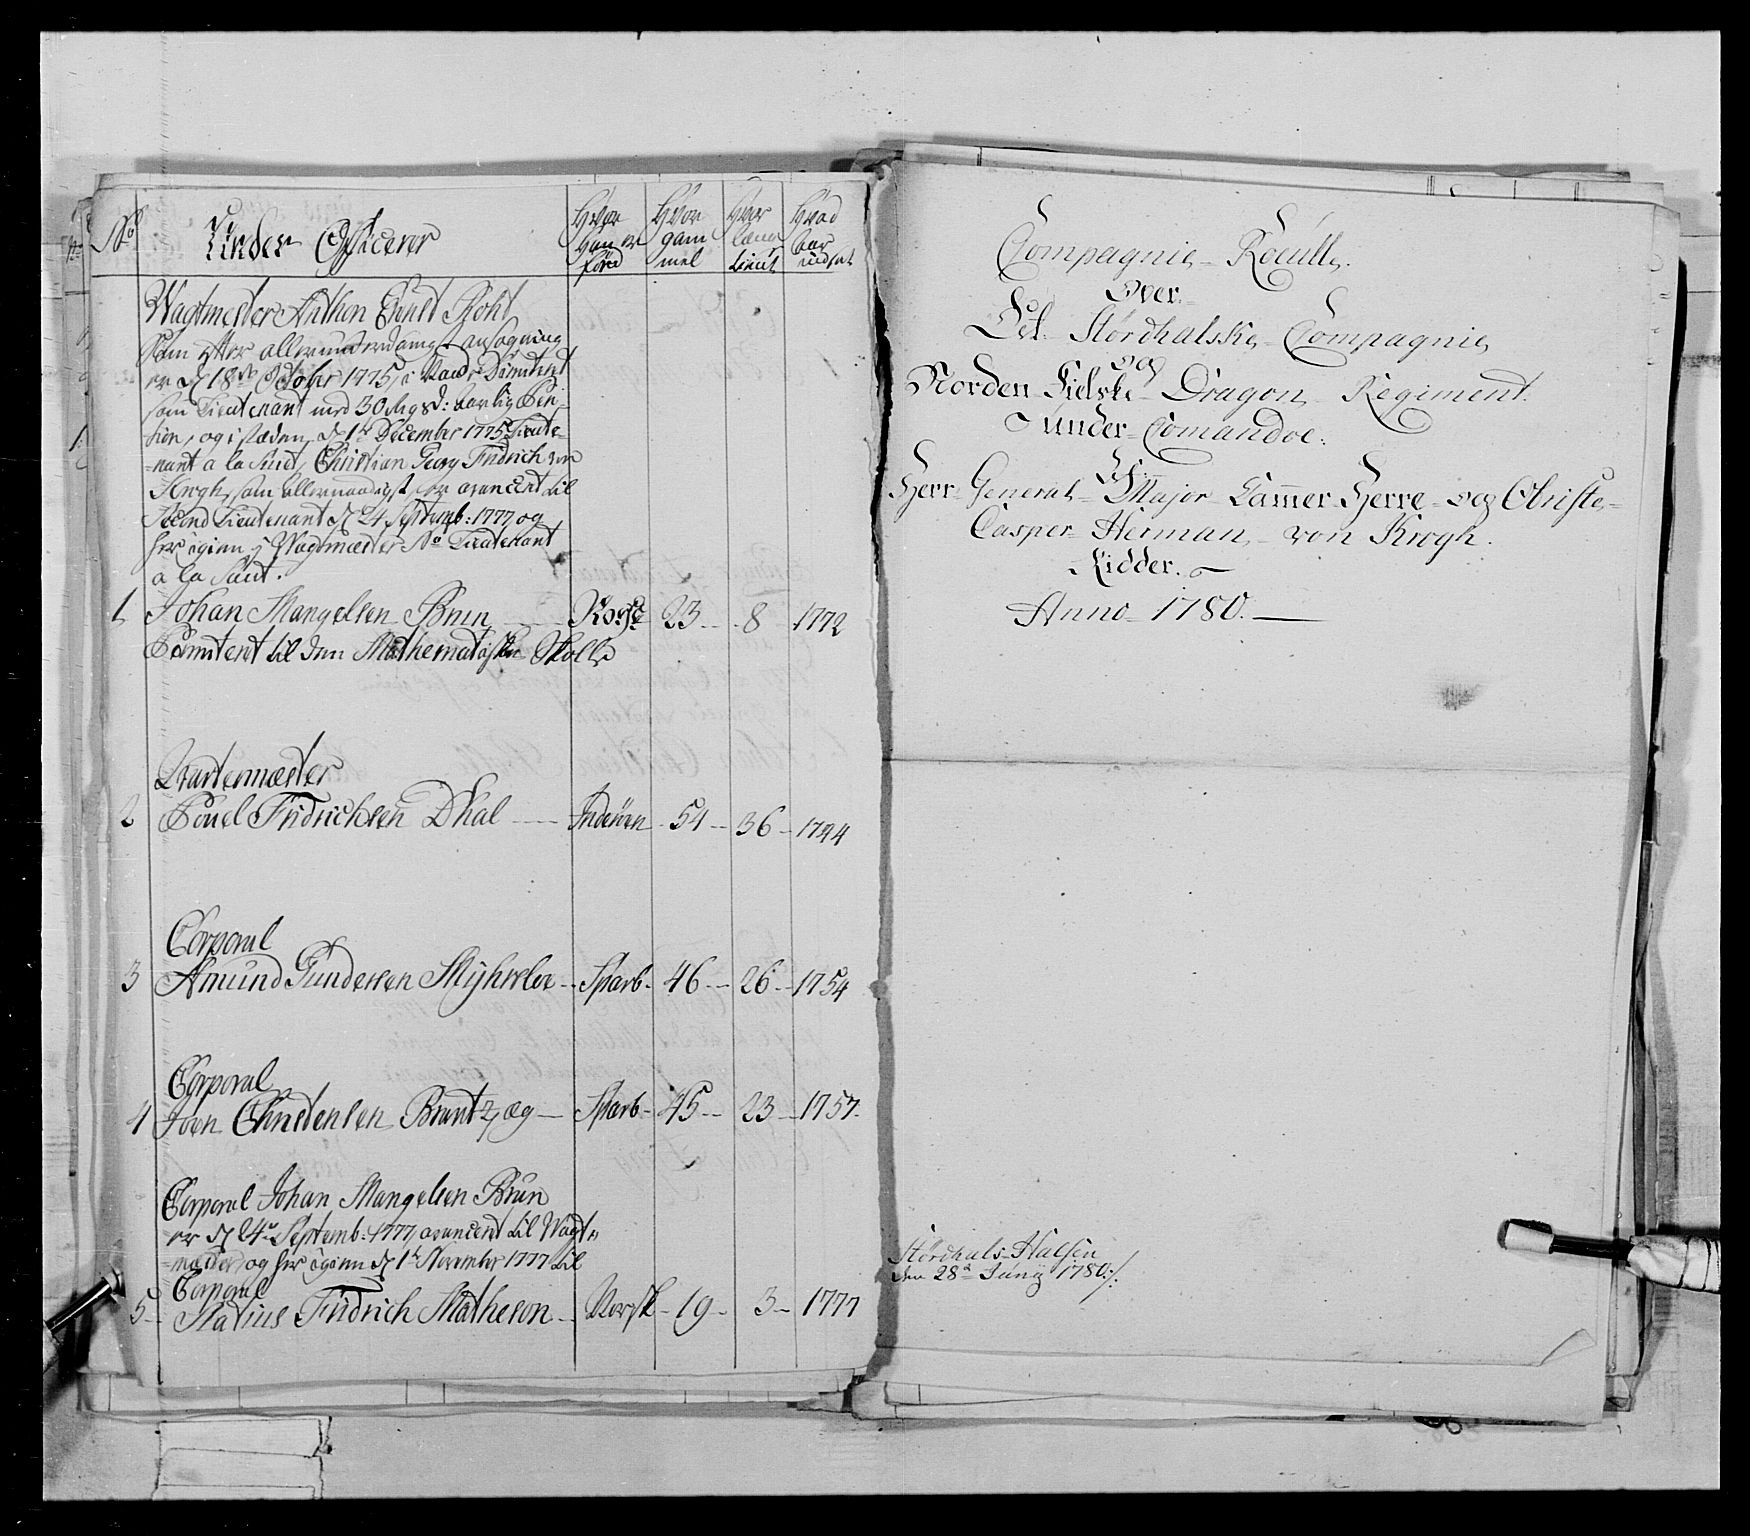 No
Under Officerer
Hvor han er föed
Hvor gam mel
Hvor længe tient
Hvad Aar indsat
Wagtmester Anthon Ernst Roht
som efter allerunderdanigst ansøgning
er d 18de Octobr 1775, i Naade Dimitteret
som Lieutenant med 30 Rigsd: aarlig Pen-
sion, og i stæden, d 1te December 1775 Lieute-
-nant a la Suit, Christian Georg Fridrich von
Krogh, som allernaadigst er avanceret til
Second Lieutenant d 24 Septemb: 1777, og
her igien Wagtmester No Lieutenant
a la Suit.
1 Johan Mangelsen Brun Ross 23 8 1772
Permiteret til den Mathematiske Skolle
Qvartermæster
2 Pouel Fridrichsen Dhal Inderöen 54 36 1744
Corporal
3 Amund Gundersen Myhrebse Sparb 46 26 1754
Corporal
4 Joen Christensen Brantzæg Sparb 45 23 1757
Corporal Johan Mangelsen Brun
er d 24de Septemb: 1777 avanceret til Wagt-
-mæster, og her igien d 1te November 1777 til
Corporal
5 Statius Fridrich Matheson Norsk 19 3 1777
Compagnie Roculle
Over
Det Størdhalske Compagnie
og
Norden Fielske Dragon Regiment
under Comandoe
af
Herr General Major Cammer Herre og Obriste
Casper Herman von Krogh.
Ridder.
Anno 1780.
Størdhals Halsen
den 28de Juny 1780 /: